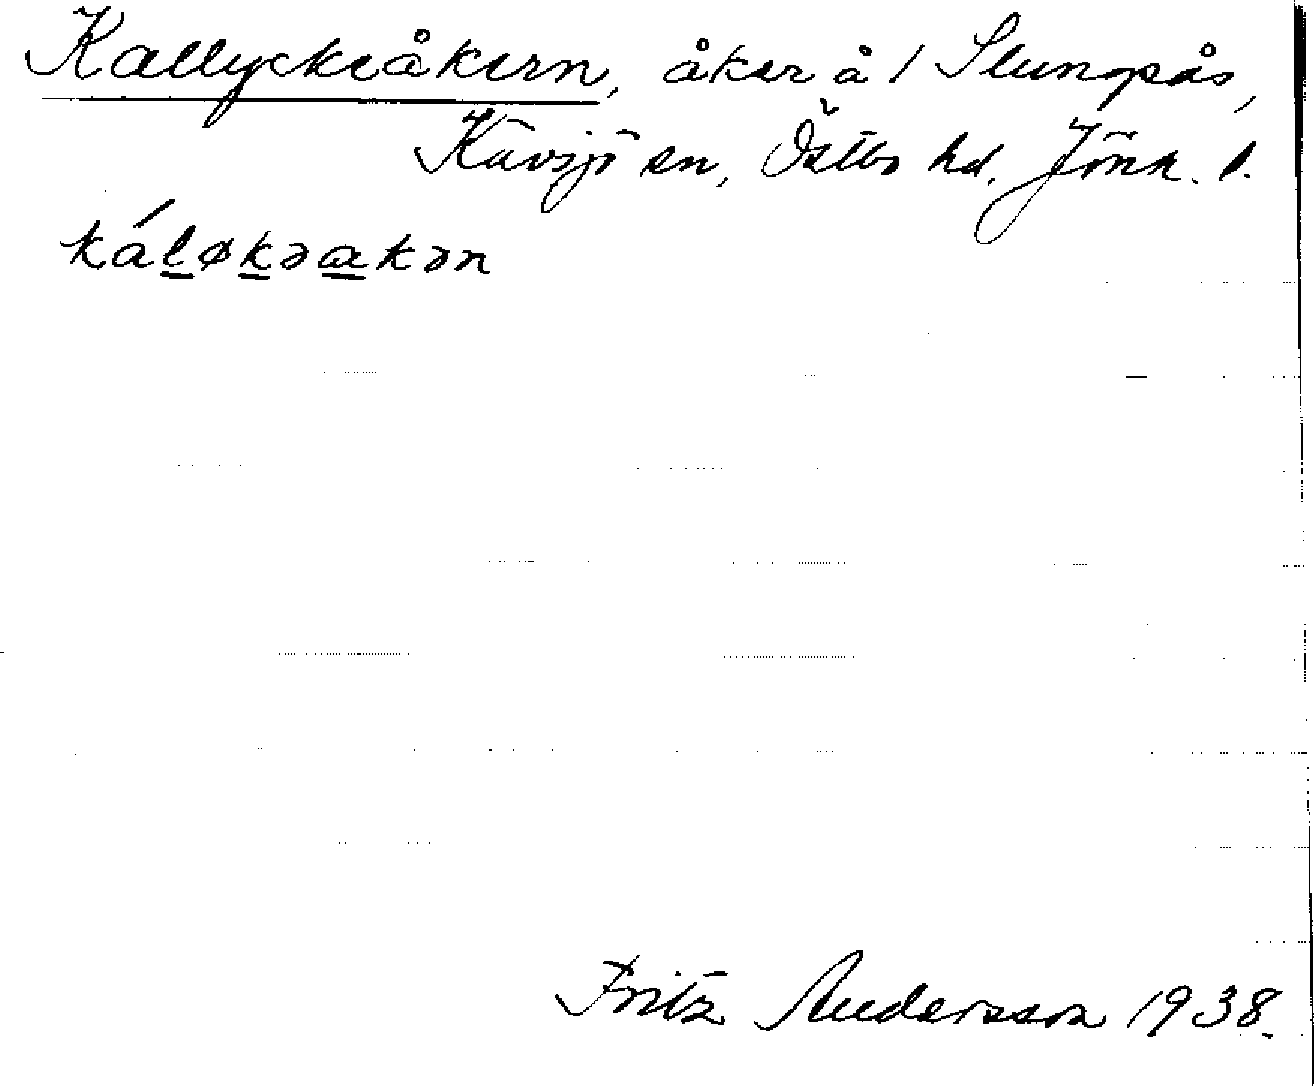 Kallyckeåkern, åker å / Slungsås,
Kävsjö sn, Östbo hd. Jönk. l.
káløkəakən
Fritz Andersson 1938.